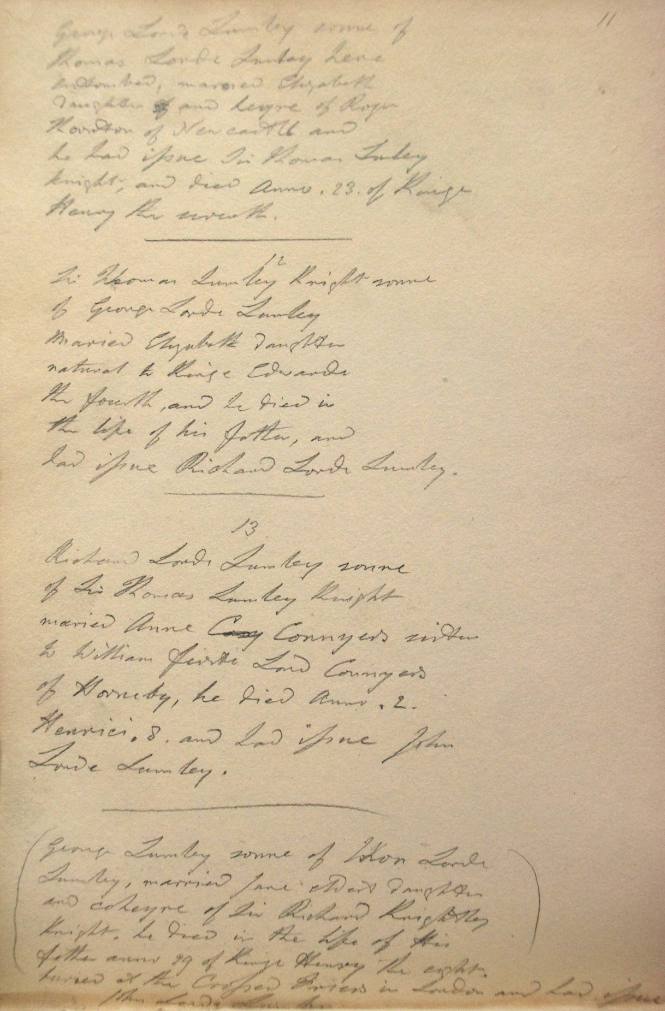 11
George Lorde Lumley sonne of
Thomas Lorde Lumley here
entombed, married Elizabeth
daughter of and heyre of Roger
Thornton of Newcastle and
he had issue Sir Thomas Lumley
knight, and died Anno. 23. of Kinge
Henry the seventh.
12
Sir Thomas Lumley Knight sonne
of George Lorde Lumley
Married Elizabeth daughter
natural to Kinge Edwarde
the fourth, and he died in
the life of his father, and
had issue Richard Lorde Lumley.
13
Richard Lorde Lumley sonne
of Sir Thomas Lumley Knight
married Anne Connyers sister
to William firste Lord Connyers
of Horneby, he died Anno. 2.
Henrici. 8. and had issue John
Lorde Lumley.
George Lumley sonne of Lorde
Lumley, married Jane eldest daughter
and coheyre of Sir Richard Knightley
Knight. he died in the life of his
father anno 29 of Kinge Henry the eight.
buried at the Crossed Friers in London and had issue
John Lorde Lumley